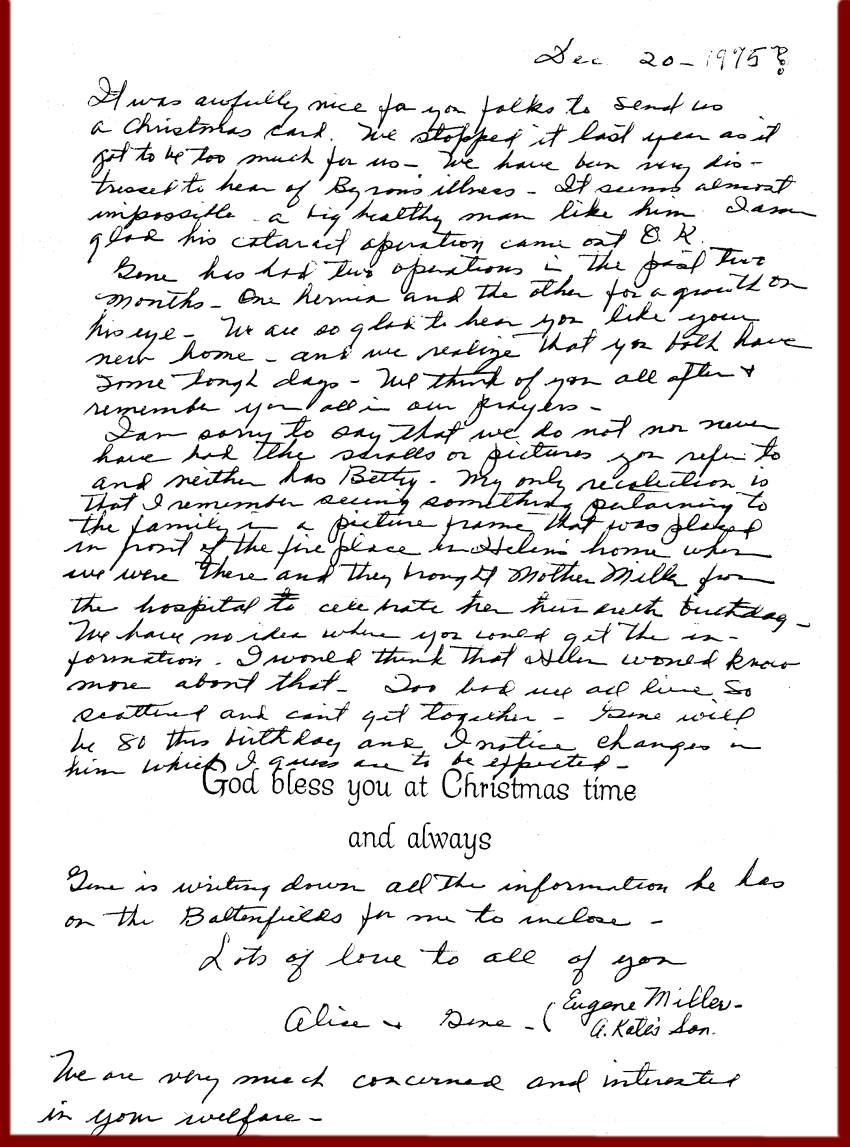 Dec. 20 - 1975?
It was awfully nice for you folks to send us
a Christmas card. We stopped it last year as it
got to be too much for us - We have been very dis-
tressed to hear of Byron's illness - It seems almost
impossible - a big healthy man like him. I am
glad his cataract operation came out O.K.
Gene has had two operations in the past two
months - One hernia and the other for a growth on
his eye - We are so glad to hear you like your
new home - and we realize that you both have
some tough days - We think of you all often &
remember you all in our prayers -
I am sorry to say that we do not nor never
have had the scrolls or pictures you refer to
and neither has Betty - My only recolection is
that I remember seeing something pertaining to
the family in a picture frame that was placed
in front of the fire place in Helen's home when
we were there and they brought Mother Miller from
the hospital to celebrate her hundreth birthday -
We have no idea where you could get the in-
formation. I would think that Helen would know
more about that - Too bad we all live so
scattered and can't get together - Gene will
be 80 this birthday and I notice changes in
him which I guess are to be expected -
God bless you at Christmas time
and always
Gene is writing down all the information he has
on the Baltenfields for me to inclose -
Lots of love to all of you
Alice & Gene - (Eugene Miller -
A. Kate's Son.
We are very much concerned and interested
in your welfare -